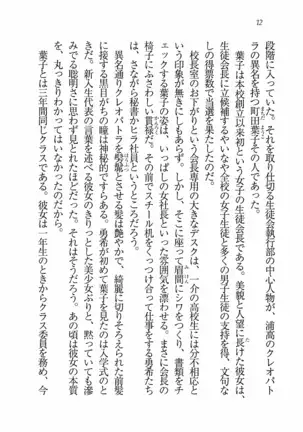 12
段階に入っていた。それを取り仕切る生徒会執行部の中心人物が、浦高のクレオパト
ラの異名を持つ町田葉子その人であった。
葉子は本校創立以来初という女子の生徒会長である。美貌と人望に長けた彼女は、
生徒会長に立候補するやいなや全校の女子生徒と多くの男子生徒の支持を得、文句な
しの得票数で当選を果たしたのだ。
校長室のお下がりという会長専用の大きなデスクは、一介の高校生には分不相応と
いう印象が無きにしもあらず。しかし、そこに座って眉間にシワをつくり、書類をチ
ェックする葉子の姿は、いっぱしの女社長といった雰囲気を漂わせる。まさに会長の
椅子にふさわしい貫禄だ。その前でスチール机をくっつけ合って仕事をする勇希たち
は、さながら秘書かヒラ社員というところだろう。
異名通りクレオパトラを髣髴とさせる髪は艶やかで、綺麗に切りそろえられた前髪
に接する黒目がちの瞳は神秘的ですらある。勇希が初めて葉子を見たのは入学式のと
きだ。新入生代表の言葉を述べる彼女のきりっとした美少女ぶりと、黙っていても滲
みでる聡明さに思わず見とれたほどだった。それはそうだろう。あの頃は彼女の本質
を、丸っきりわかってはいなかったのだから。
葉子とは三年間同じクラスである。彼女は一年生のときからクラス委員を務め、今